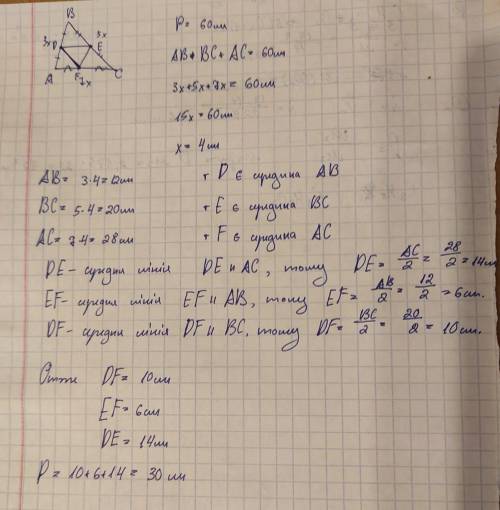 B
3x 5x
D E
A F C
7x
P = 60см
AB + BC + AC = 60см
3x+5x+7x = 60см
15x = 60см
x = 4см
AB = 3·4 = 12см т D є середина AB
BC = 5·4 = 20см т E є середина BC
AC = 7·4 = 28см т F є середина AC
DE - середня лінія DE || AC, тому DE = AC/2 = 28/2 = 14см
EF - середня лінія EF || AB, тому EF = AB/2 = 12/2 = 6см.
DF - середня лінія DF || BC, тому DF = BC/2 = 20/2 = 10см.
Отже DF = 10см
EF = 6см
DE = 14см
P = 10+6+14 = 30 см